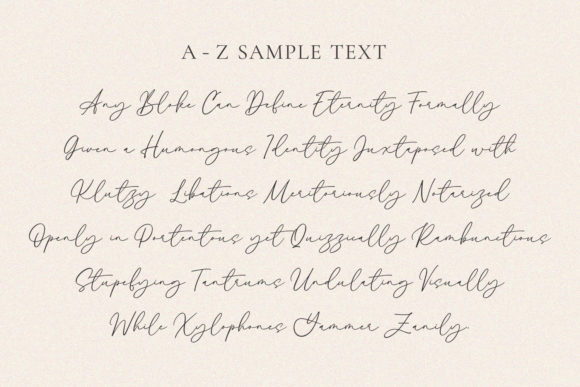 A - Z SAMPLE TEXT
Any Bloke Can Define Eternity Formally
Given a Humongous Identity Juxtaposed with
Klutzy Libations Meritoriously Notarized
Openly in Portentous yet Quizzically Rambunctious
Stupefying Tantrums Undulating Visually
While Xylophones Yammer Zanily.